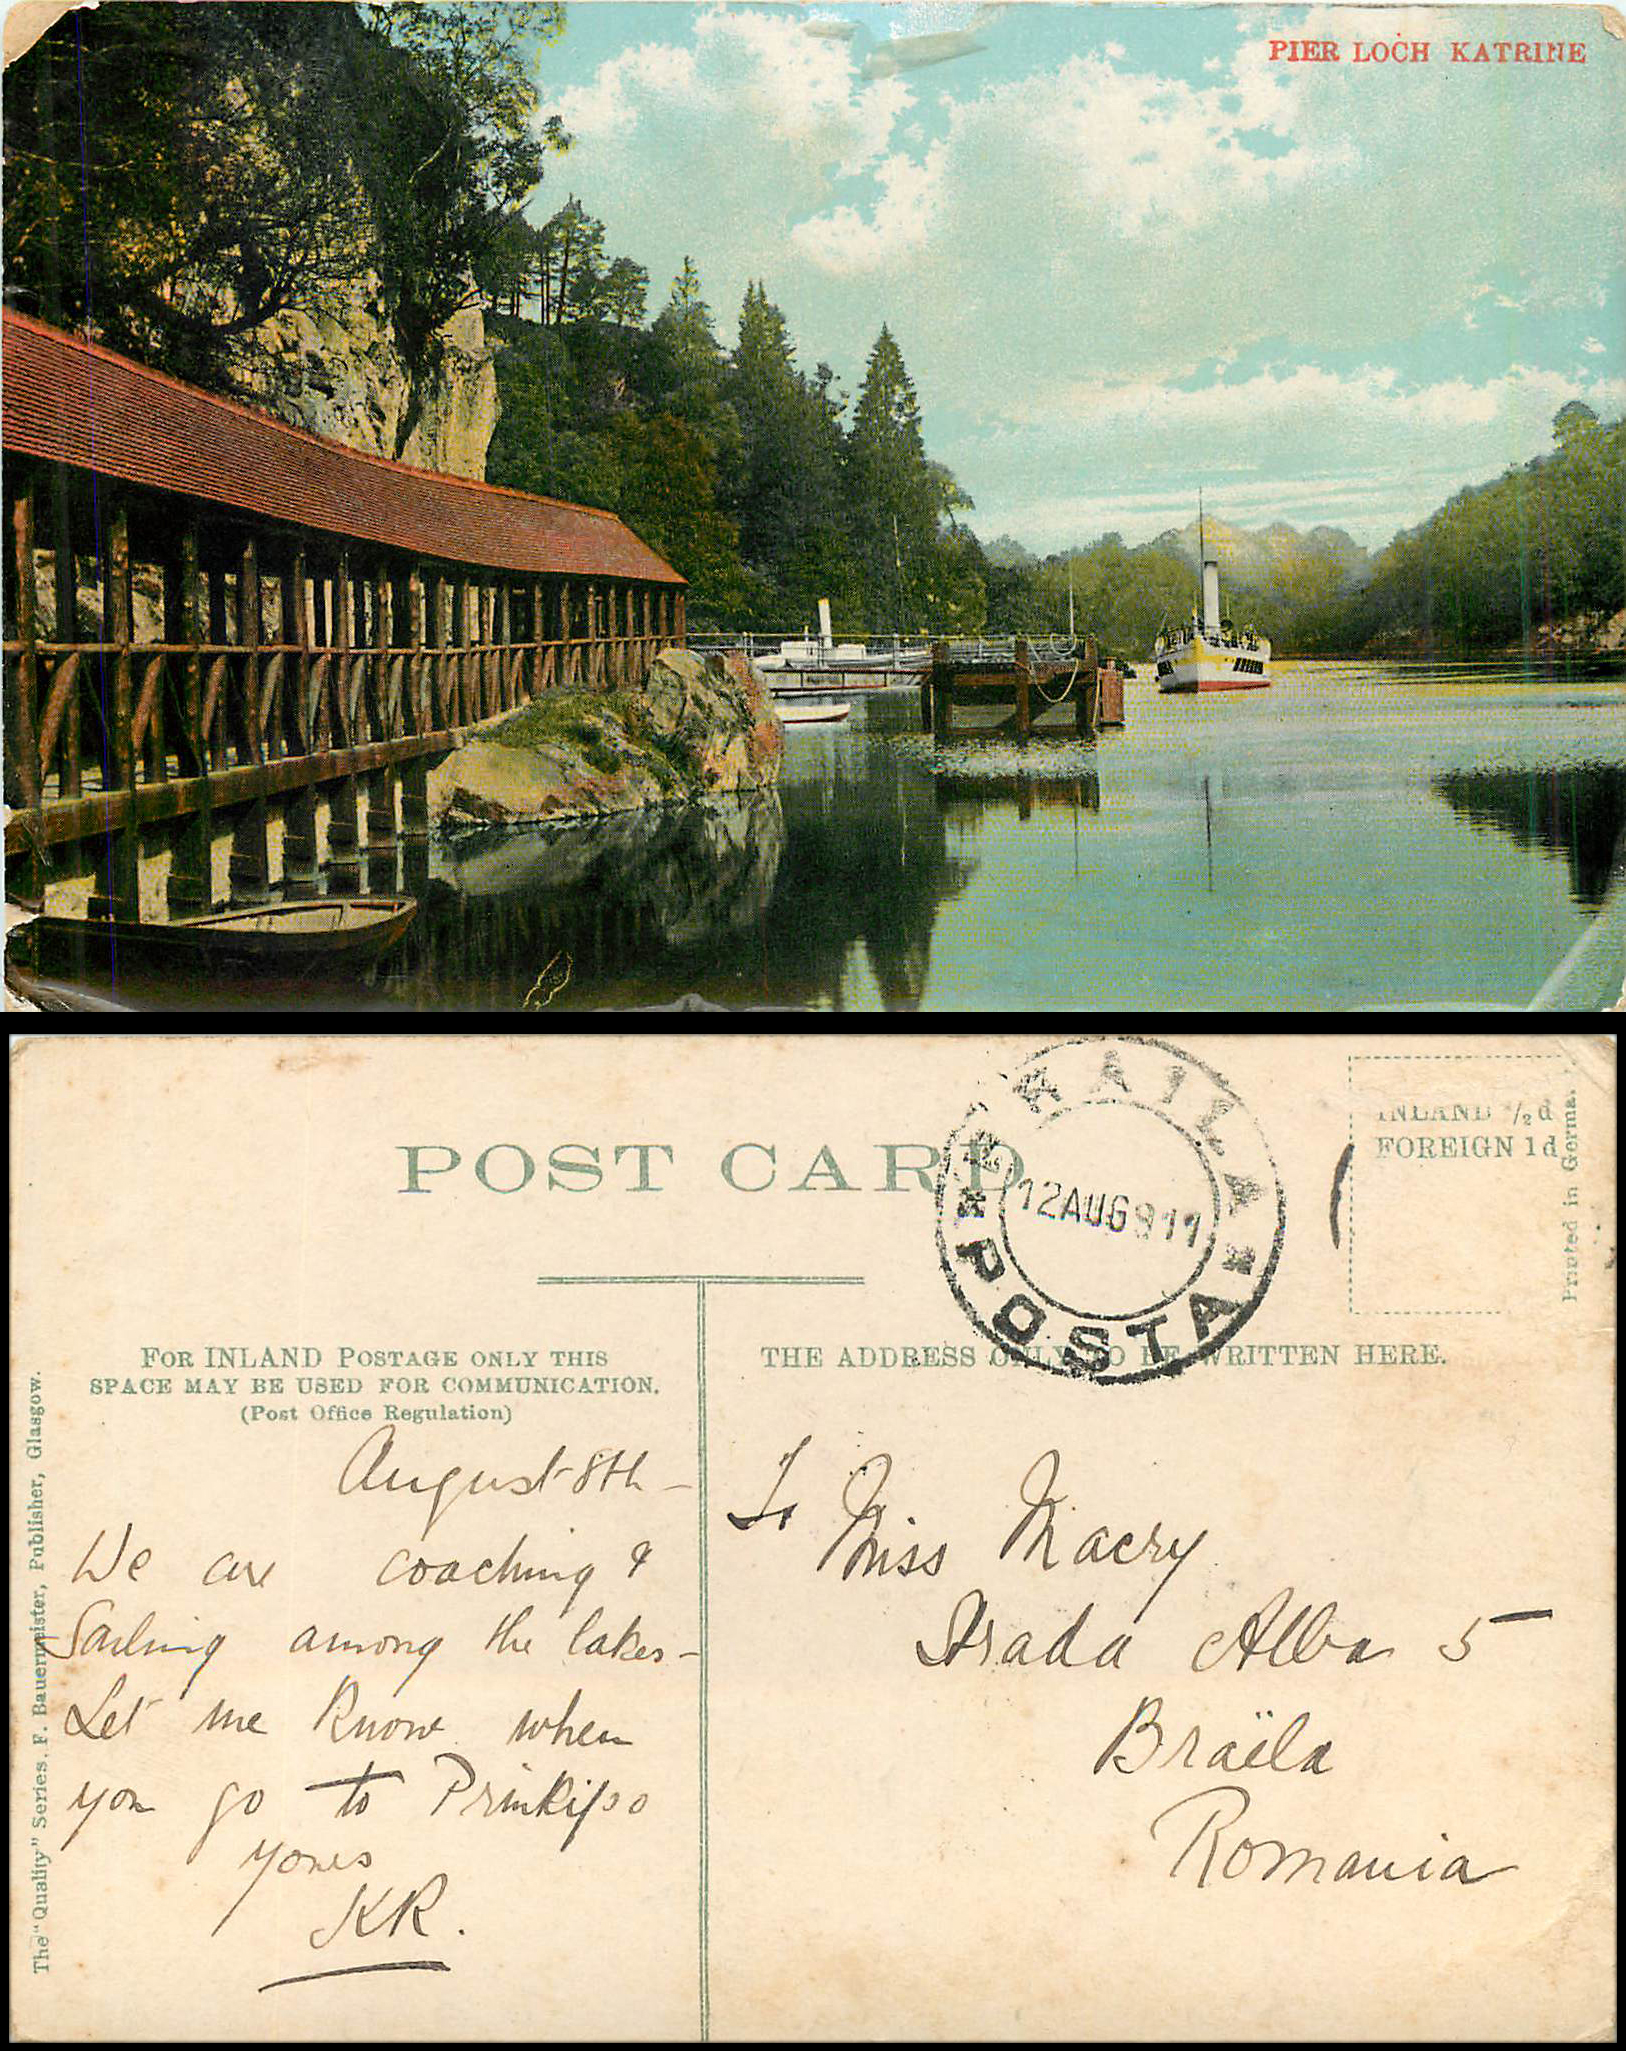 PIER LOCH KATRINE
POST CARD
BRAILA
12 AUG 911
* POSTA *
INLAND ½d
FOREIGN 1d
Printed in Germa
FOR INLAND POSTAGE ONLY THIS
SPACE MAY BE USED FOR COMMUNICATION.
(Post Office Regulation)
THE ADDRESS ONLY TO BE WRITTEN HERE.
The "Quality" Series. F. Bauermeister, Publisher, Glasgow.
August 8th -
We are coaching &
Sailing among the lakes -
Let me know when
you go to Prinkipo
yours
KR.
To Miss Macry
Strada Alba 5
Braïla
Romania